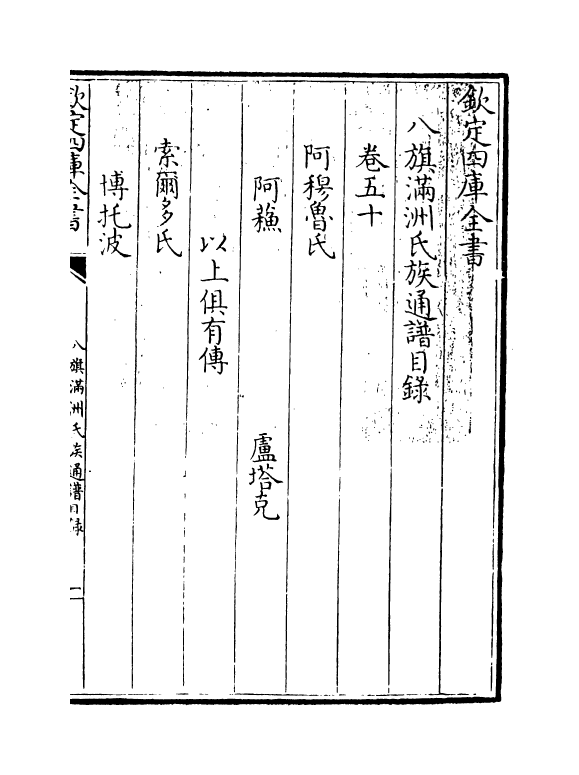 欽定四庫全書
八旗滿洲氏族通譜目録
卷五十
阿穆魯氏
阿蘓 盧塔克
以上俱有傳
索爾多氏
博托波
欽定四庫全書
八旗滿洲氏族通譜目録
一